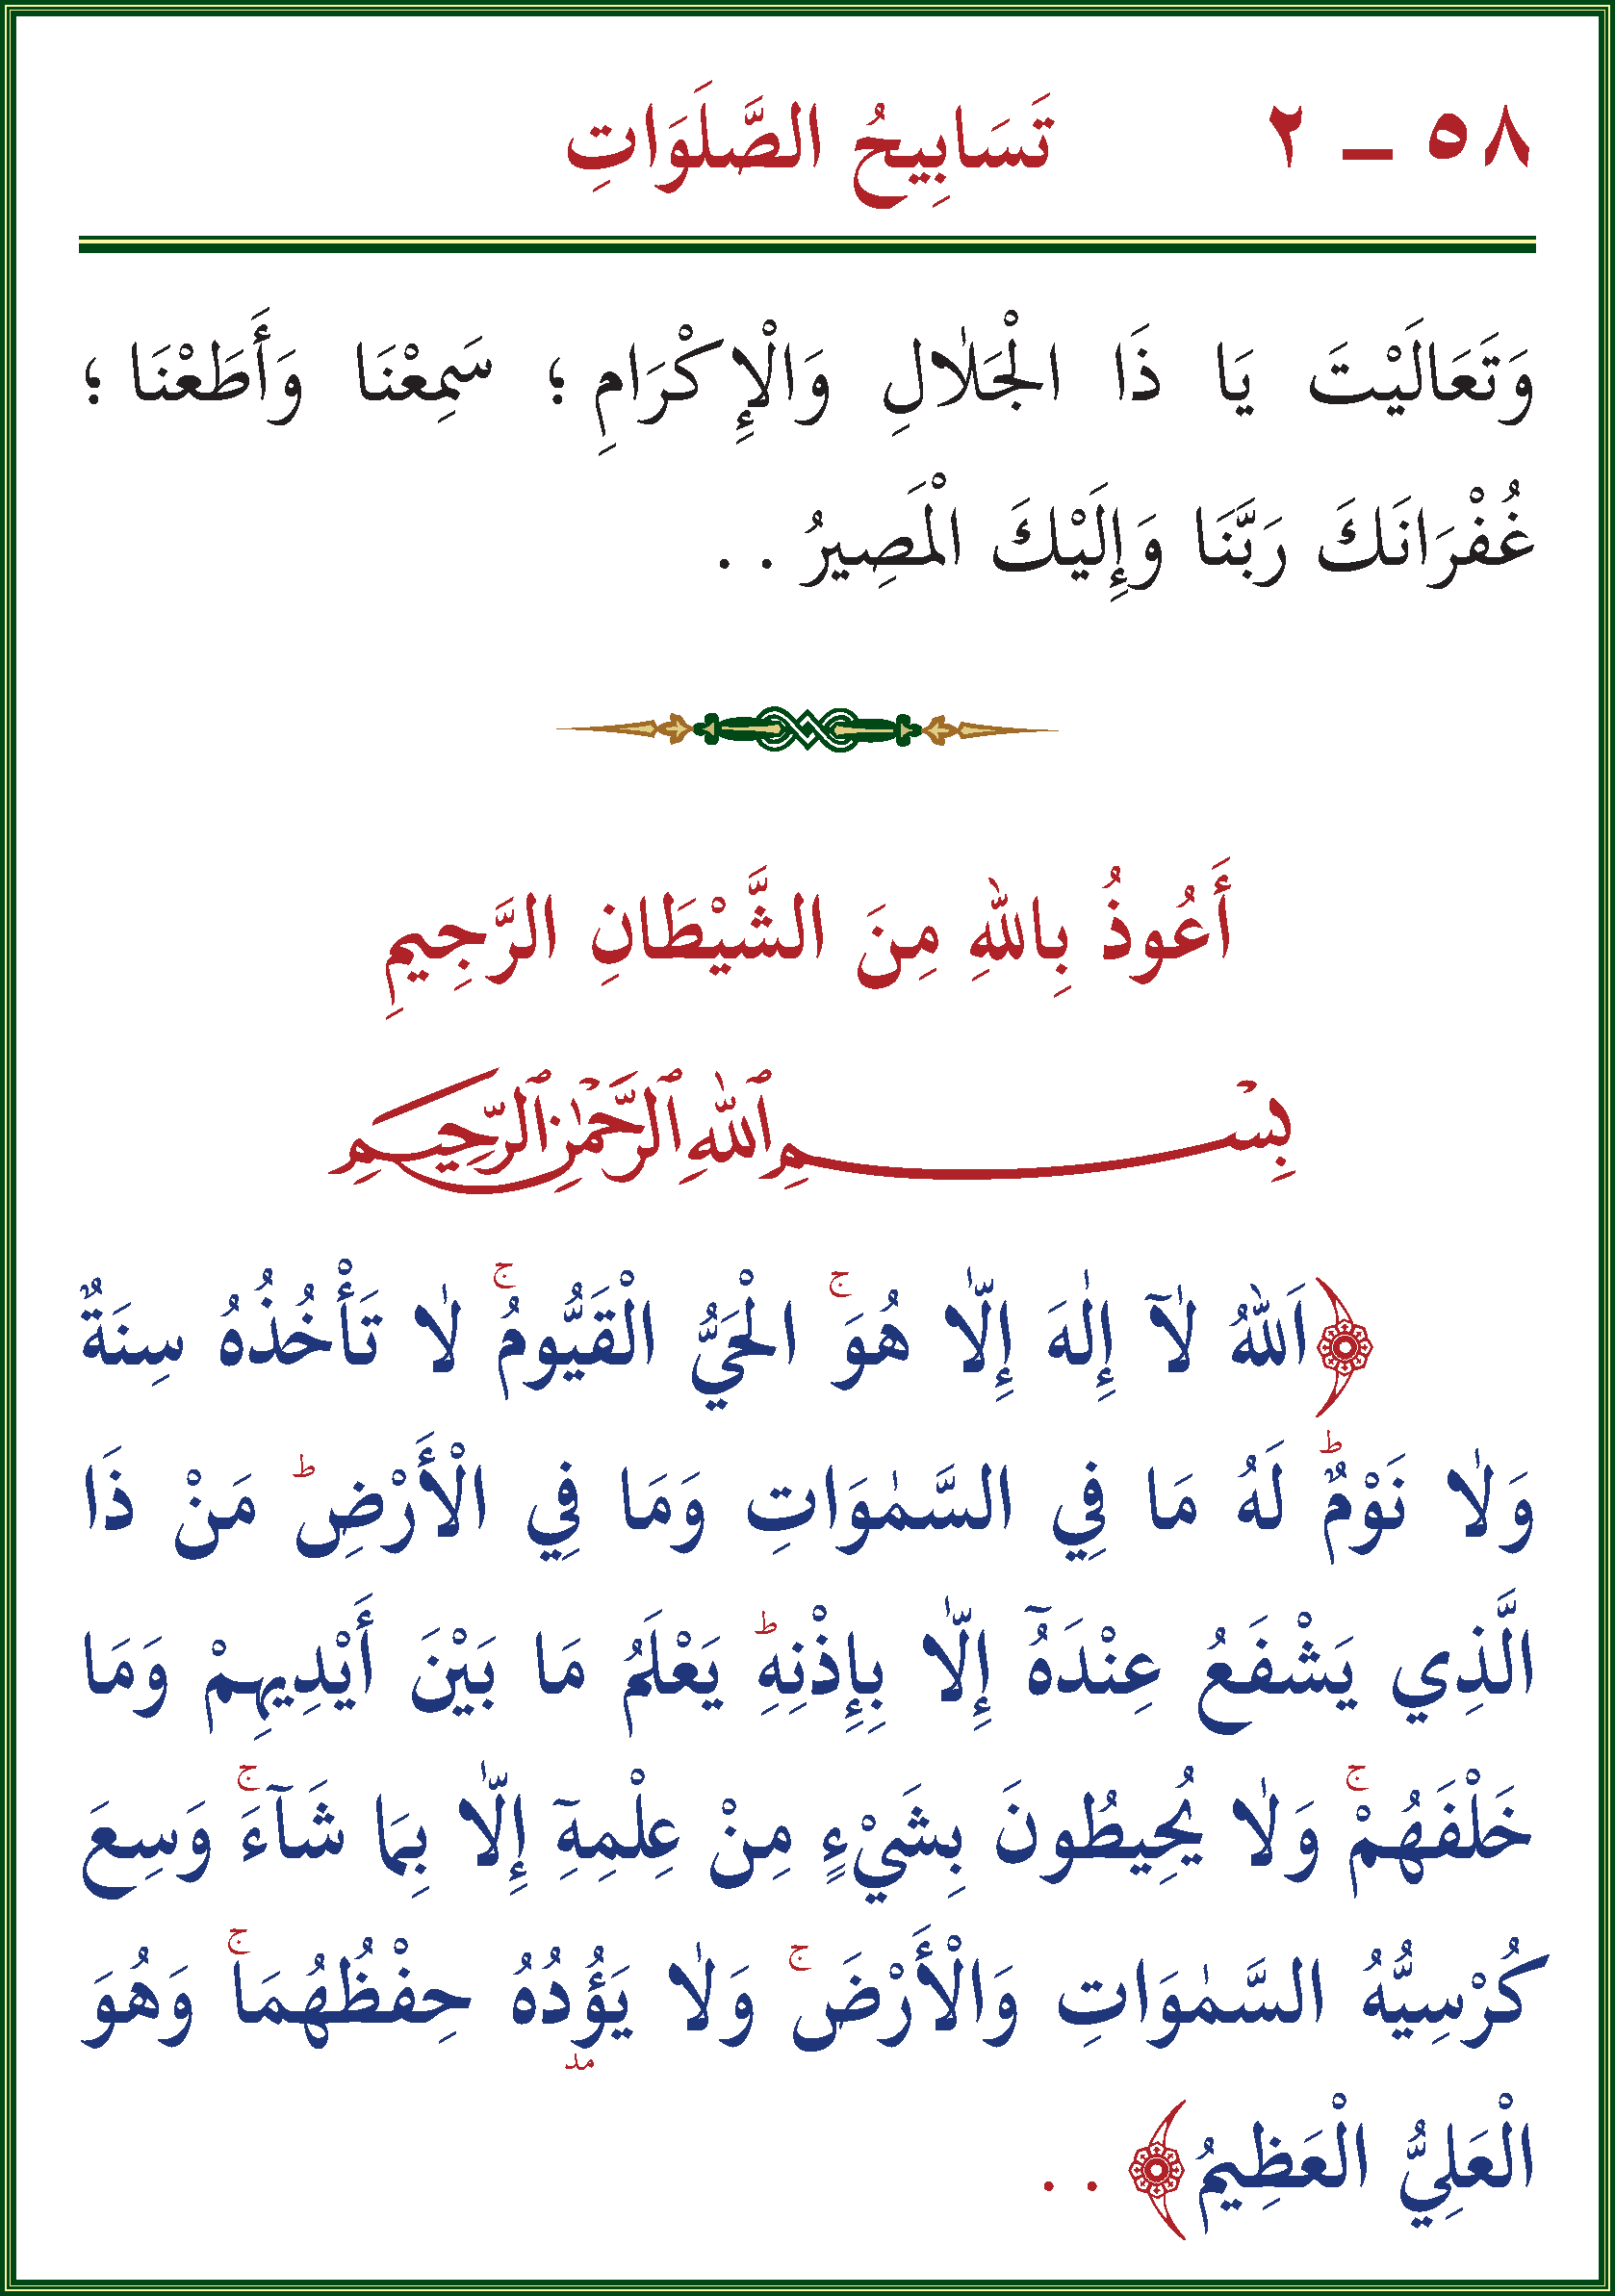 ٥٨ ــ ٢ تَسَابِيحُ الصَّلَوَاتِ
وَتَعَالَيْتَ يَا ذَا الْجَلَالِ وَالْإِكْرَامِ ؛ سَمِعْنَا وَأَطَعْنَا ؛
غُفْرَانَكَ رَبَّنَا وَإِلَيْكَ الْمَصِيرُ . .
أَعُوذُ بِاللهِ مِنَ الشَّيْطَانِ الرَّجِيمِ
بِسْمِ ٱللهِ ٱلرَّحْمٰنِ ٱلرَّحِيمِ
﴿اَللهُ لَآ إِلٰهَ إِلَّا هُوَ ۚ الْحَيُّ الْقَيُّومُ ۚ لَا تَأْخُذُهُ سِنَةٌ
وَلَا نَوْمٌ ؕ لَهُ مَا فِي السَّمٰوَاتِ وَمَا فِي الْأَرْضِ ؕ مَنْ ذَا
الَّذِي يَشْفَعُ عِنْدَهُٓ إِلَّا بِإِذْنِهِ ؕ يَعْلَمُ مَا بَيْنَ أَيْدِيهِمْ وَمَا
خَلْفَهُمْ ۚ وَلَا يُحِيطُونَ بِشَيْءٍ مِنْ عِلْمِهِٓ إِلَّا بِمَا شَآءَ ۚ وَسِعَ
كُرْسِيُّهُ السَّمٰوَاتِ وَالْأَرْضَ ۚ وَلَا يَؤُدُهُ حِفْظُهُمَا ۚ وَهُوَ
مد
الْعَلِيُّ الْعَظِيمُ﴾ . .